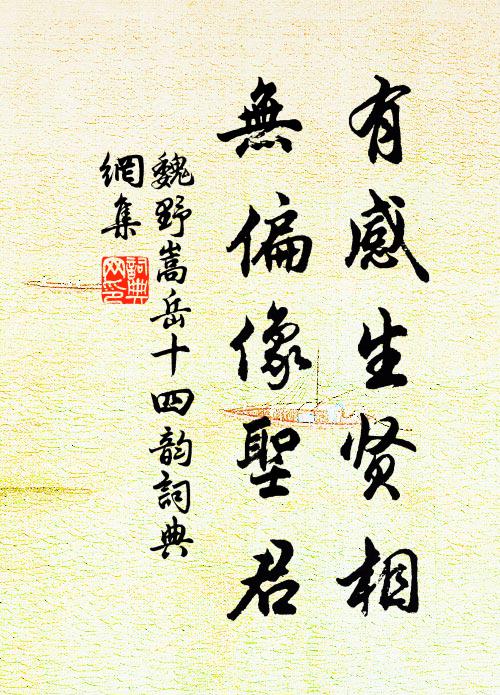 有感生贤相
無偏像聖君
魏野嵩岳十四韵詞典
網集
詞典網印